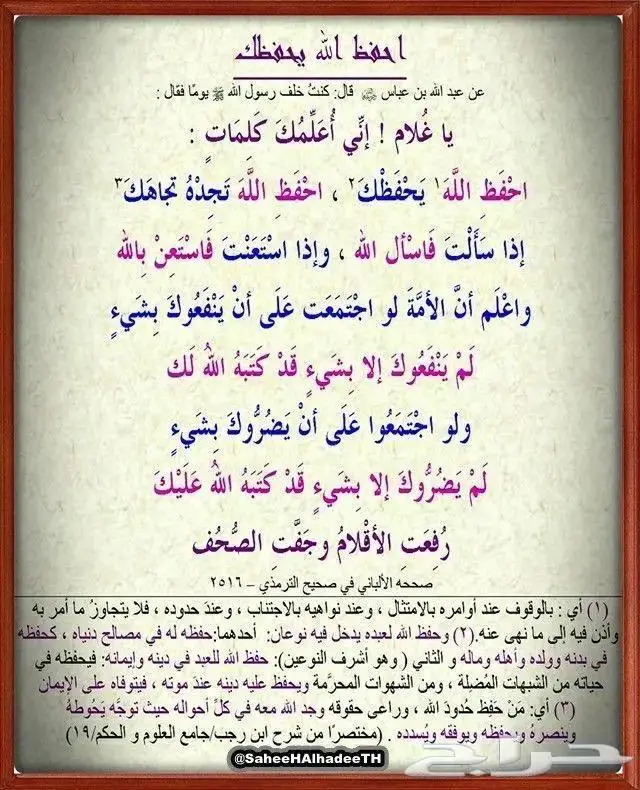 احفظ الله يحفظك
عن عبد الله بن عباس ﵁ قال: كنتُ خلف رسول الله ﷺ يومًا فقال :
يا غُلام ! إنِّي أُعَلِّمُكَ كَلِمَاتٍ :
احْفَظِ اللَّهَ ١ يَحْفَظْكَ ٢ ، احْفَظِ اللَّهَ تَجِدْهُ تجاهَكَ ٣
إذا سَأَلْتَ فَاسْأَل الله ، وإذا اسْتَعَنْتَ فَاسْتَعِنْ بِالله
واعْلَم أنَّ الأمَّةَ لو اجْتَمَعَت عَلَى أنْ يَنْفَعُوكَ بِشَيءٍ
لَمْ يَنْفَعُوكَ إلا بِشَيءٍ قَدْ كَتَبَهُ اللهُ لَك
ولو اجْتَمَعُوا عَلَى أنْ يَضُرُّوكَ بِشَيءٍ
لَمْ يَضُرُّوكَ إلا بِشَيءٍ قَدْ كَتَبَهُ اللهُ عَلَيْكَ
رُفِعَتِ الأقْلامُ وجَفَّتِ الصُّحُف
صححه الألباني في صحيح الترمذي – ٢٥١٦
(١) أي : بالوقوف عند أوامره بالامتثال ، وعند نواهيه بالاجتناب ، وعند حدوده ، فلا يتجاوزُ ما أمر به
وأذن فيه إلى ما نهى عنه.(٢) وحفظ الله لعبده يدخل فيه نوعان: أحدهما:حفظه له في مصالح دنياه ، كحفظه
في بدنه وولده وأهله وماله و الثاني ( وهو أشرف النوعين): حفظ الله للعبد في دينه وإيمانه: فيحفظه في
حياته من الشبهات المُضِلة ، ومن الشهوات المحرَّمة ويحفظ عليه دينه عندَ موته ، فيتوفاه على الإيمان
(٣) أي: مَنْ حَفِظ حُدودَ الله ، وراعى حقوقه وجد الله معه في كلِّ أحواله حيث توجَّه يَحُوطهُ
وينصرهُ ويحفظه ويوفقه ويُسدده . (مختصرًا من شرح ابن رجب/جامع العلوم و الحكم/١٩)
@SaheeHAlhadeeTH
حراج